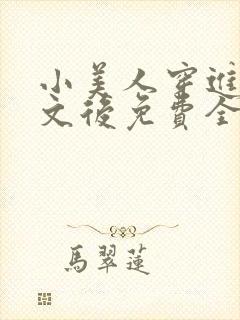 小美人穿進
文後免費全
馬翠蓮